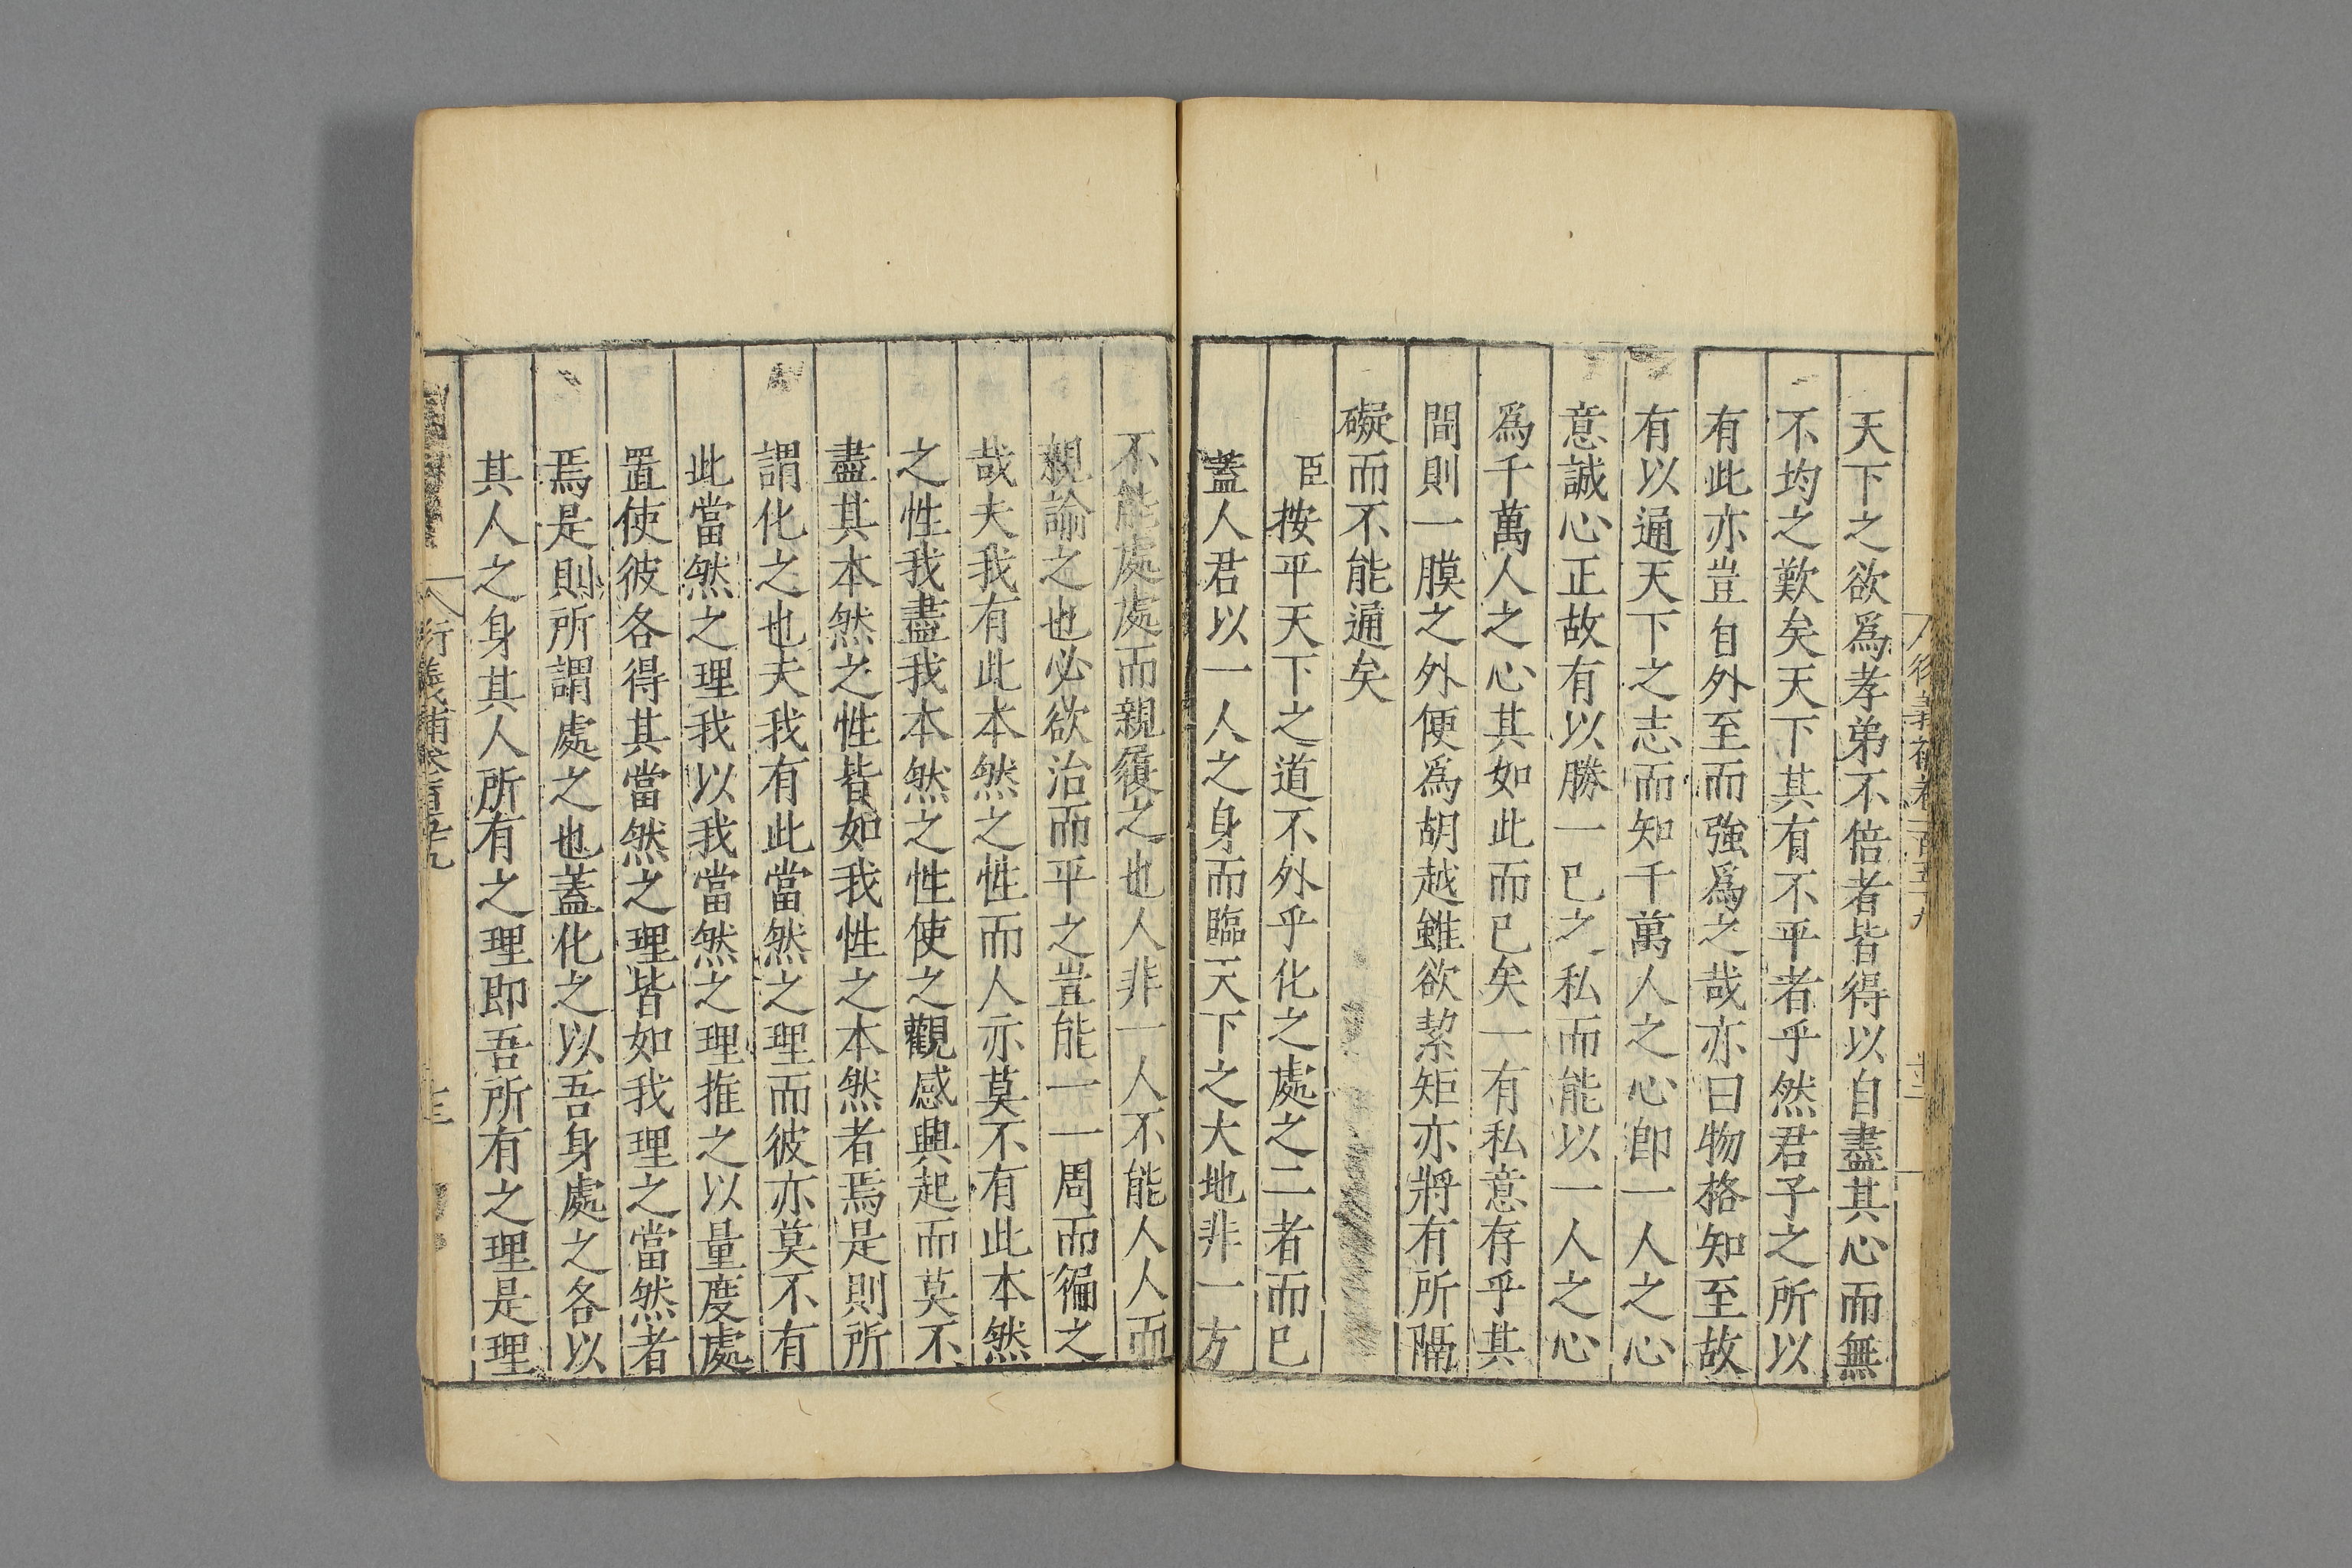 天下之欲爲孝弟不倍者皆得以自盡其心而無
不均之歎矣天下其有不平者乎然君子之所以
有此亦豈自外至而強爲之哉亦曰物格知至故
有以通天下之志而知千萬人之心卽一人之心
意誠心正故有以勝一已之私而能以一人之心
爲千萬人之心其如此而已矣一有私意存乎其
間則一膜之外便爲胡越雖欲絜矩亦將有所隔
礙而不能通矣
臣按平天下之道不外乎化之處之二者而已
蓋人君以一人之身而臨天下之大地非一方
不能處處而親履之也人非一人不能人人而
親諭之也必欲治而平之豈能一一周而徧之
哉夫我有此本然之性而人亦莫不有此本然
之性我盡我本然之性使之觀感興起而莫不
盡其本然之性皆如我性之本然者焉是則所
謂化之也夫我有此當然之理而彼亦莫不有
此當然之理我以我當然之理推之以量度處
置使彼各得其當然之理皆如我理之當然者
焉是則所謂處之也蓋化之以吾身處之各以
其人之身其人所有之理即吾所有之理是理
衍義補卷百五九